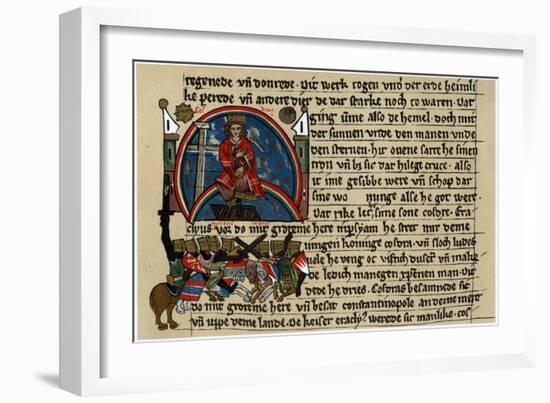 regenede vñ donrede. Dit werk togen vnder der erde heimli
ke perede vñ andere dier de dar starke noch to waren. Dat
ging ůme also de hemel. Doch mit
der sunnen vnde den manen vnde
den sternen. hir ouene satte he sinen
tron vñ bi sic dat hilege cruce. also
it ime gesibbe were vñ schop dar
sine wo nunge alse he got were.
Dat rike let sime sone cosdre. Era
clius vor do mit groteme here he mit deme
iungen koninge cosdra. vñ sloch ludes
uele he dusent vñ make
de ledich manegen xpenen man. Dit
dede he Cosdras besammede sic
do mit groteme here vñ besat constantinopole an deme mere
vñ uppe deme lande. De keiser werede sic manlike. cos